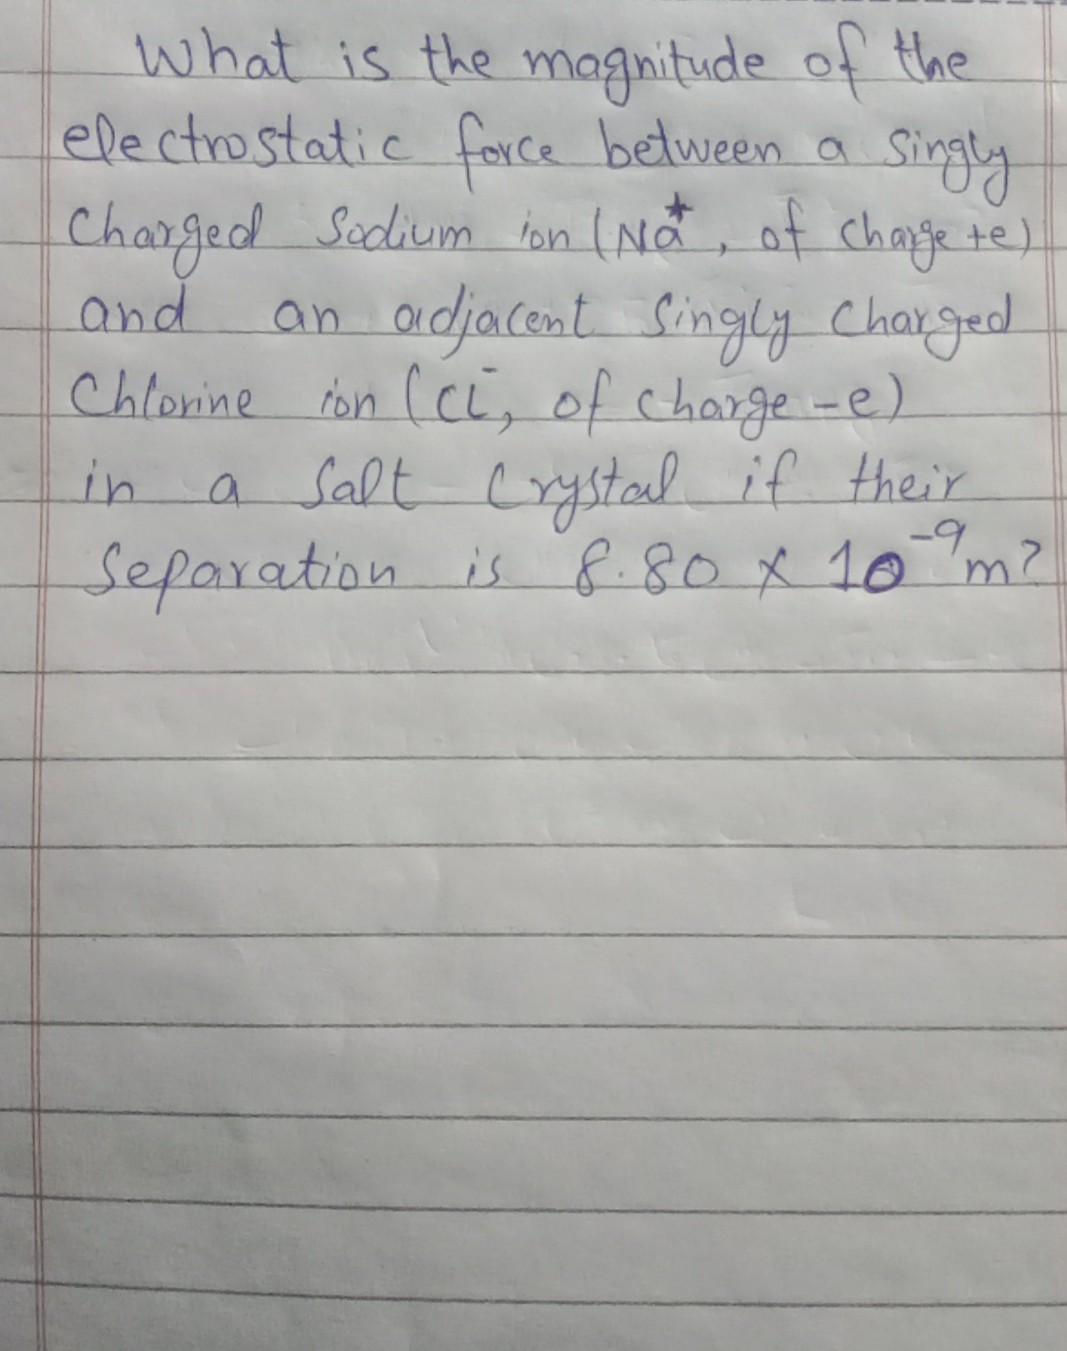 What is the magnitude of the
electrostatic force between a singly
charged Sodium ion (Na⁺, of charge +e)
and an adjacent singly charged
Chlorine ion (Cl⁻, of charge -e)
in a salt crystal if their
separation is 8.80 x 10⁻⁹m?